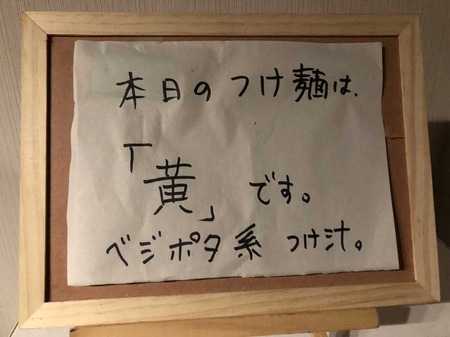 本日のつけ麺は、
「黄」です。
ベジポタ系つけ汁。